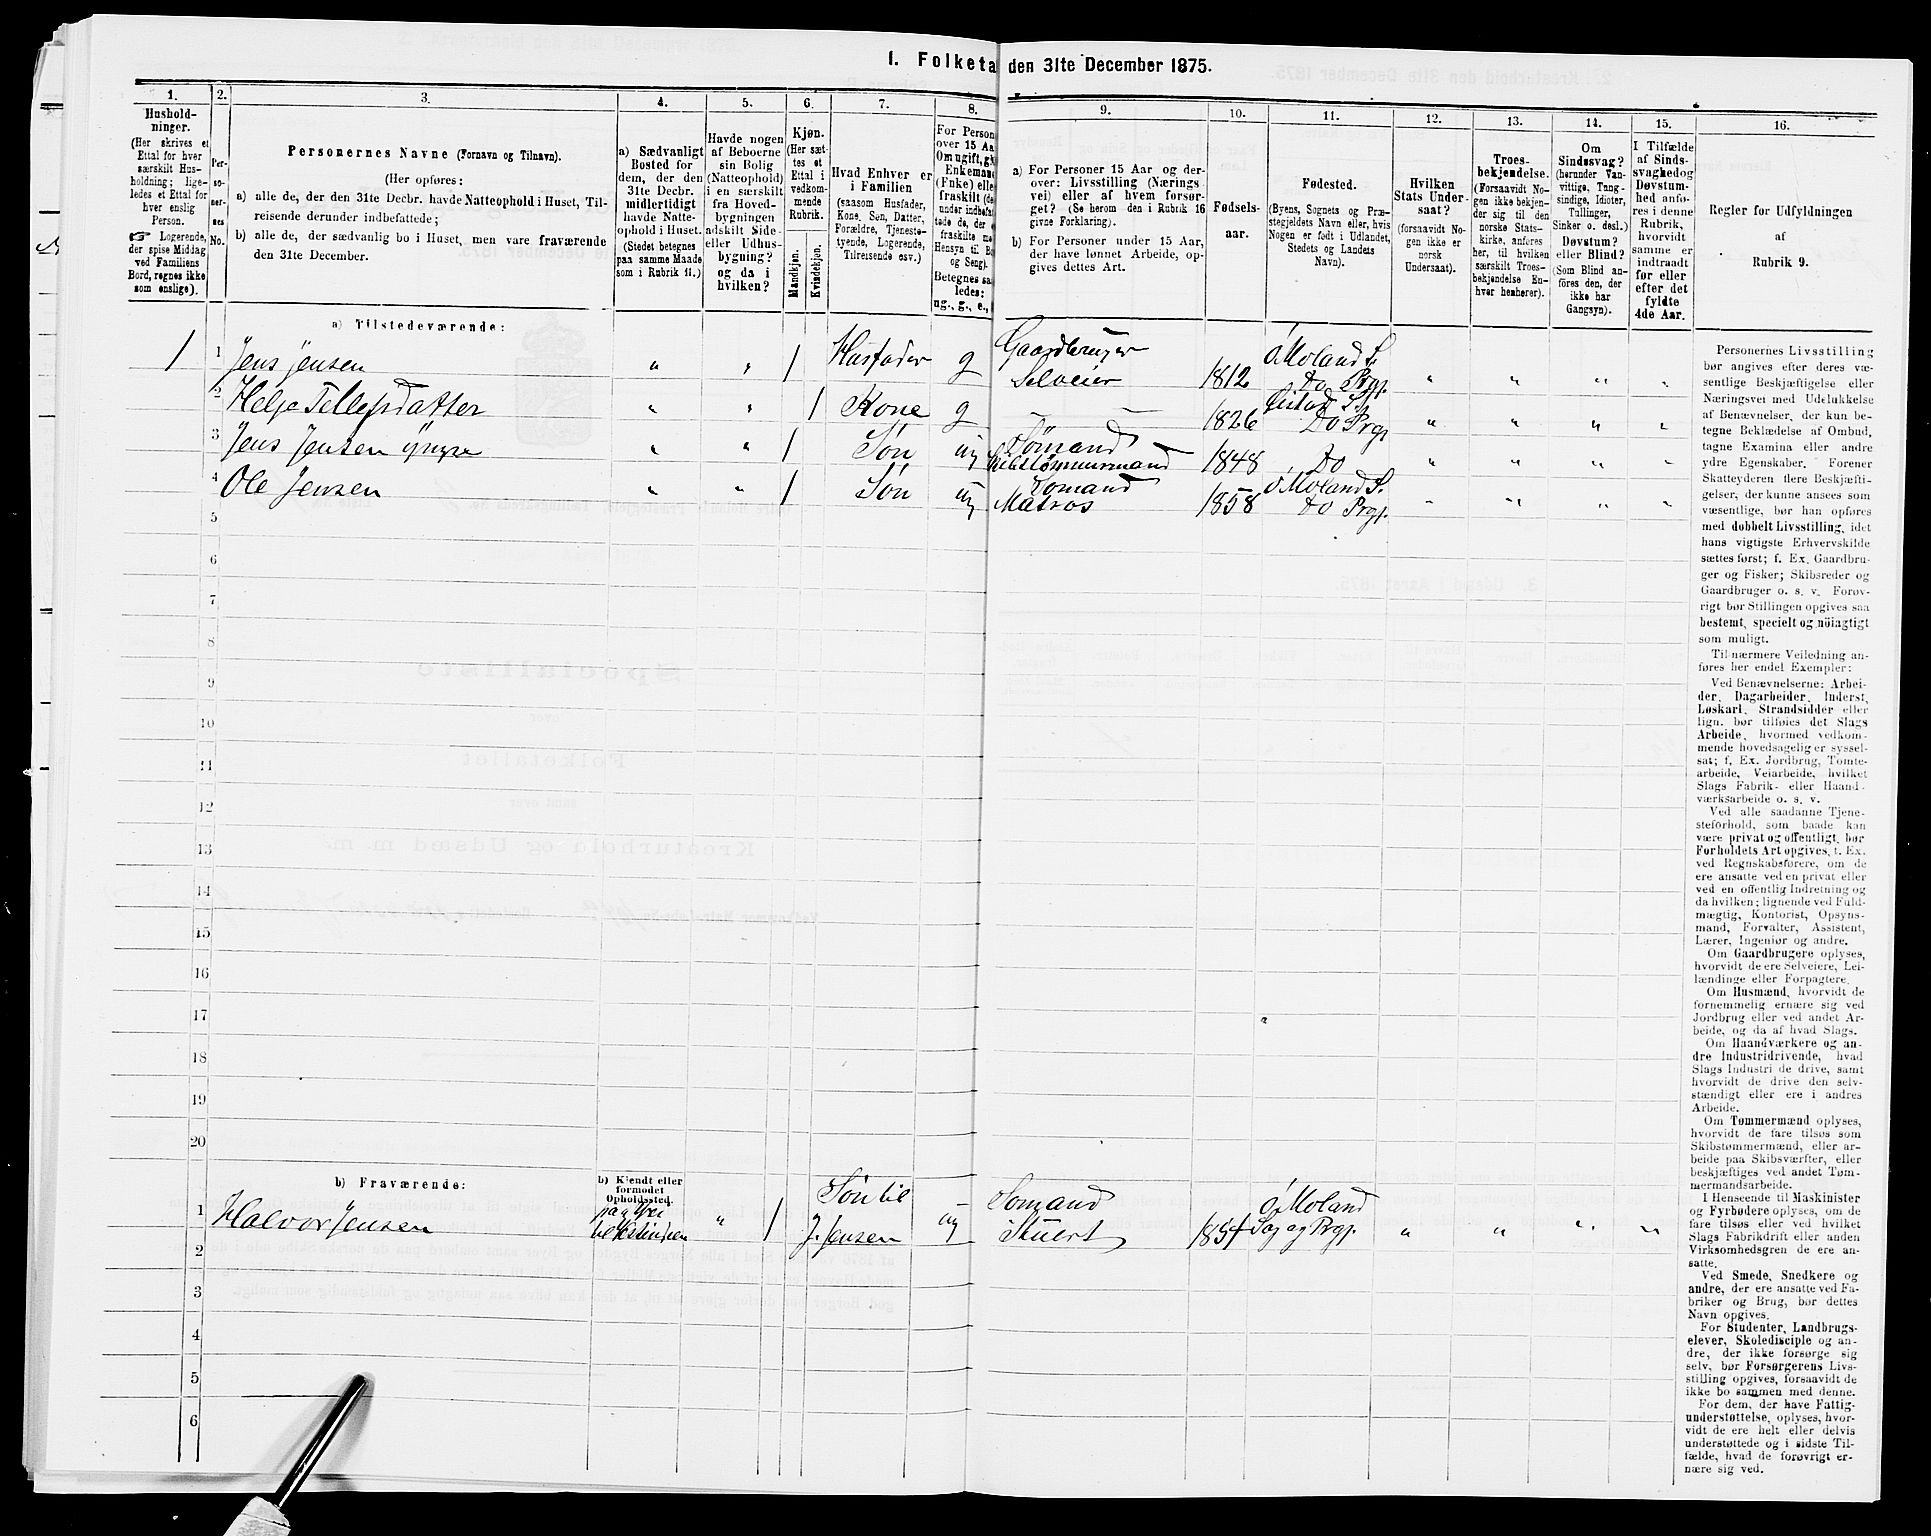 1. Folketa den 31te December 1875.
1. 2. 3. 4. 5. 6. 7. 8. 9. 10. 11. 12. 13. 14. 15. 16.
Hushold-
ninger.
(Her skrives et
Ettal for hver
særskilt Hus-
holdning; lige-
ledes et Ettal for
hver enslig
Person.
☞ Logerende,
der spise Middag
ved Familiens
Bord, regnes ikke
som enslige).
Per-
so-
ner-
nes
No.
Personernes Navne (Fornavn og Tilnavn).
(Her opføres:
a) alle de, der den 31te Decbr. havde Natteophold i Huset, Til-
reisende derunder indbefattede;
b) alle de, der sædvanlig bo i Huset, men vare fraværende
den 31te December.
a) Sædvanligt
Bosted for
dem, der den
31te Decbr.
midlertidigt
havde Natte-
ophold i Huset.
(Stedet betegnes
paa samme Maade
som i Rubrik 11.)
Havde nogen
af Beboerne
sin Bolig
(Natteophold)
i en særskilt
fra Hoved-
bygningen
adskilt Side-
eller Udhus-
bygning?
og da i
hvilken?
Kjøn.
(Her sæt-
tes et
Ettal i
vedkom-
mende
Rubrik.
Mandkjøn.
Kvindekjøn.
Hvad Enhver er
i Familien
(saasom Husfader,
Kone, Søn, Datter,
Forældre, Tjeneste-
tyende, Logerende,
Tilreisende osv.)
For Person
over 15 Aa
Om ugift, gi
Enkeman
(Enke) elle
fraskilt (de
under indbefa
tede de, der e
fraskilte me
Hensyn til Bo
og Seng).
Betegnes saa
ledes:
ug., g., e.,
a) For Personer 15 Aar og der-
over: Livsstilling (Nærings-
vei) eller af hvem forsør-
get? (Se herom den i Rubrik 16
givne Forklaring).
b) For Personer under 15 Aar,
der have lønnet Arbeide, op-
gives dettes Art.
Fødsels-
aar.
Fødested.
(Byens, Sognets og Præ-
stegjeldets Navn eller, hvis
Nogen er født i Udlandet,
Stedets og Landets
Navn).
Hvilken
Stats Under-
saat?
(forsaavidt No-
gen ikke er
norsk
Undersaat).
Troes-
bekjendelse.
(Forsaavidt No-
gen ikke bekjen-
der sig til den
norske Stats-
kirke, anføres
her, til hvilken
særskilt Troes-
bekjendelse En-
hver henhører).
Om
Sindssvag?
(herunder Van-
vittige, Tung-
sindige, Idioter,
Tullinger,
Sinker o. desl.)
Døvstum?
eller Blind?
(Som Blind an-
føres den, der
ikke har
Gangsyn).
I Tilfælde
af Sinds-
svaghed og
Døvstum-
hed anfø-
res i denne
Rubrik,
hvorvidt
samme er
indtraadt
før eller
efter det
fyldte
4de Aar.
Regler for Udfyldningen
af
Rubrik 9.
a) Tilstedeværende:
1 1 Jens Jensen „ „ 1 Husfader g Gaardbruger Selveier 1812 ö Moland S. Do Prgj. „ „ „ „
2 Helje Tellefsdatter „ „ 1 Kone g — — 1826 S. Do Prgj „ „ „ „
3 Jens Jensen yngre „ „ 1 Søn ug Sömand Skibstømmermand 1848 Do „ „ „ „
4 Ole Jensen „ „ 1 Søn ug Sömand Matros 1858 ö Moland S. Do Prgj. „ „ „ „
5
6
7
8
9
10
11
12
13
14
15
16
17
18
19
20
b) Fraværende:
b) Kjendt eller
formodet
Opholdssted.
1 Halvor Jensen paa Vei til Vestindien „ 1 Søn til J. Jensen ug Sömand Stuert 1854 ö Moland Sog og Prgj. „ „ „ „
2
3
4
5
6
Personernes Livsstilling
bør angives efter deres væ-
sentlige Beskjæftigelse eller
Næringsvei med Udelukkelse
af Benævnelser, der kun be-
tegne Beklædelse af Ombud,
tagne Examina eller andre
ydre Egenskaber. Forener
Skatteyderen flere Beskjæfti-
gelser, der kunne ansees som
væsentlige, bør han opføres
med dobbelt Livsstilling, idet
hans vigtigste Erhvervskilde
sættes først; f. Ex. Gaardbru-
ger og Fisker; Skibsreder og
Gaardbruger o. s. v. Forøv-
rigt bør Stillingen opgives saa
bestemt, specielt og nöiagtigt
som muligt.
Til nærmere Veiledning an-
føres her endel Exempler:
Ved Benævnelserne: Arbei-
der, Dagarbeider, Inderst,
Løskarl, Strandsidder eller
lign. bør tilføies det Slags
Arbeide, hvormed vedkom-
mende hovedsagelig er syssel-
sat; f. Ex. Jordbrug, Tomte-
arbeide, Veiarbeide, hvilket
Slags Fabrik- eller Haand-
værksarbeide o. s. v.
Ved alle saadanne Tjene-
steforhold, som baade kan
være privat og offentligt, bør
Forholdets Art opgives, f. Ex.
ved Regnskabsførere, om de
ere ansatte ved en privat eller
ved en offentlig Indretning og
da hvilken; lignende ved Fuld-
mægtig, Kontorist, Opsyns-
mand, Forvalter, Assistent,
Lærer, Ingeniør og andre.
Om Gaardbrugere oplyses,
hvorvidt de ere Selveiere, Lei-
lændinge eller Forpagtere.
Om Husmænd, hvorvidt de
fornemmelig ernære sig ved
Jordbrug eller ved andet Ar-
beide, og da af hvad Slags.
Om Haandværkere og an-
dre Industridrivende, hvad
Slags Industri de drive, samt
hvorvidt de drive den selv-
stændigt eller ere i andres
Arbeide.
Om Tømmermænd oplyses,
hvorvidt de fare tilsøs som
Skibstømmermænd, eller ar-
beide paa Skibsværfter, eller
beskjæftiges ved andet Tøm-
mermandsarbeide.
I Henseende til Maskinister
og Fyrbødere oplyses, om de
fare tilsøs eller ved hvilket
Slags Fabrikdrift eller anden
Virksomhedsgren de ere an-
satte.
Ved Smede, Snedkere og
andre, der ere ansatte ved Fa-
briker og Brug, bør dettes
Navn opgives.
For Studenter, Landbrugs-
elever, Skoledisciple og an-
dre, der ikke forsørge sig
selv, bør Forsørgerens Livs-
stilling opgives, forsaavidt de
ikke bo sammen med denne.
For dem, der have Fattig-
understøttelse, oplyses, hvor-
vidt de ere helt eller delvis
understøttede og i sidste Til-
fælde, hvad de forøvrigt er-
nære sig ved.